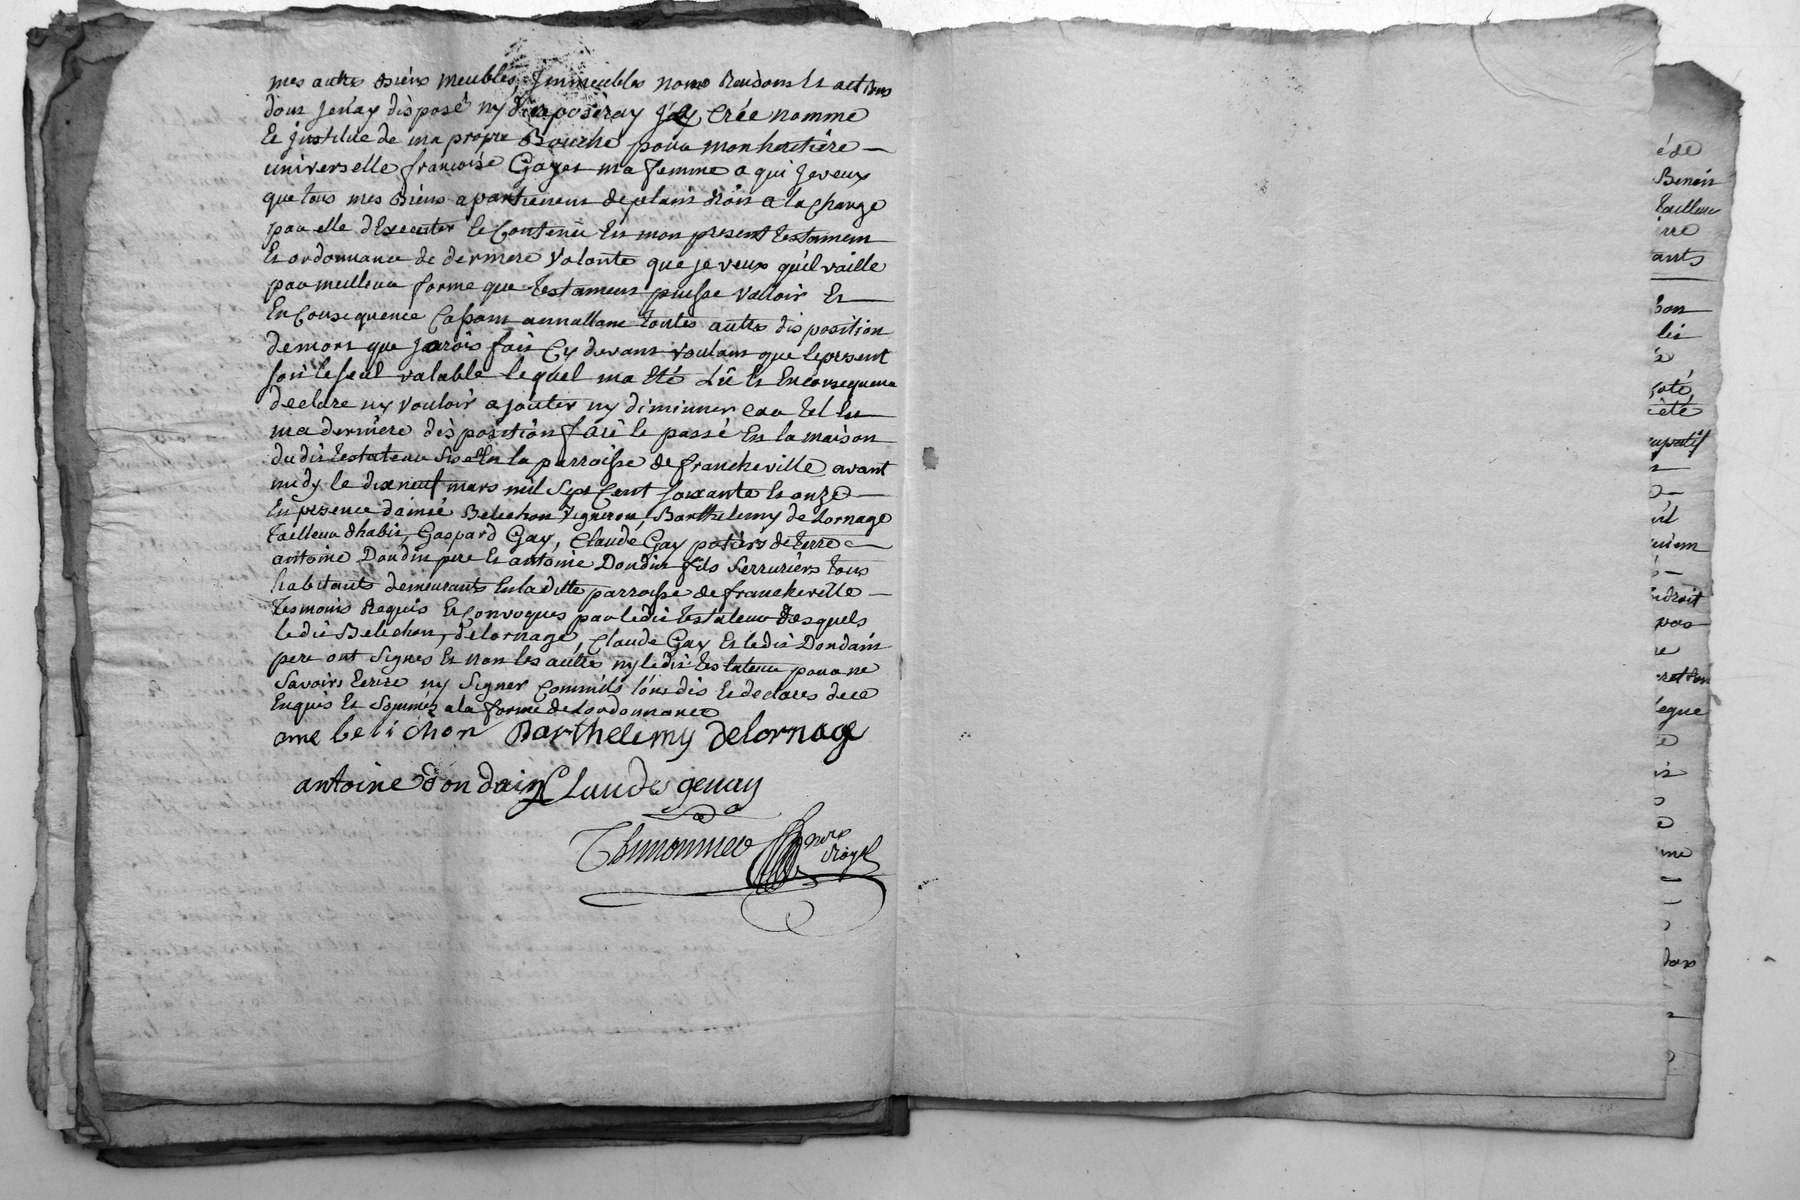 mes autres Biens meubles, Jmmeubles noms Raisons Et actions
dont Jenay disposé ny disposeray J'ay Créé nomme
Et Jnstitue de ma propre Bouche pour mon heritiere
universelle francoise Gayet ma femme a qui Jeveux
que tous mes Biens apartienent de plain droit a la Charge
par elle dExecuter le Contenu En mon present testament
Et ordonnance de derniere Volonté que je veux quil vaille
par meilleur forme que testament puisse Valloir Et
En Consequence Cassant annullant toutes autres disposition
de mort que Jarois fait Cy devant voulant que le present
soit le seul valable lequel ma Eté Lû Et En consequence
declare ny vouloir ajouter ny diminuer Car tel Est
ma derniere disposition fait le passé En la maison
dudit testateur sise En la parroisse de francheville avant
midy le dix neuf mars mil Sept Cent soixante Et onze
En presence daimé Belichon Vigneron, Barthelemy delornage
tailleur dhabit, Gaspard Gay, Claude Gay potiers de terre
antoine Dondin pere Et antoine Dondin fils Serruriers tous
habitants demeurants En la ditte parroisse de francheville
temoins Requis Et Convoques par ledit testateur desquels
ledit Belichon, delornage, Claude Gay Et ledit Dondain
pere ont signes Et non les autres ny ledit testateur pour ne
savoir Ecrire ny signer Comme ils l'ont dit Et declaré de ce
Enquis Et sommés a la forme de Lordonnance
ame belichon Barthelemy Delornage
antoine dondain Claude geuay
Thimonnier nre
Royal
éde
Benoit
tailleur
rre
ants
Bon
lis
oté,
iété
upatif
droit
pas
re
legue
me